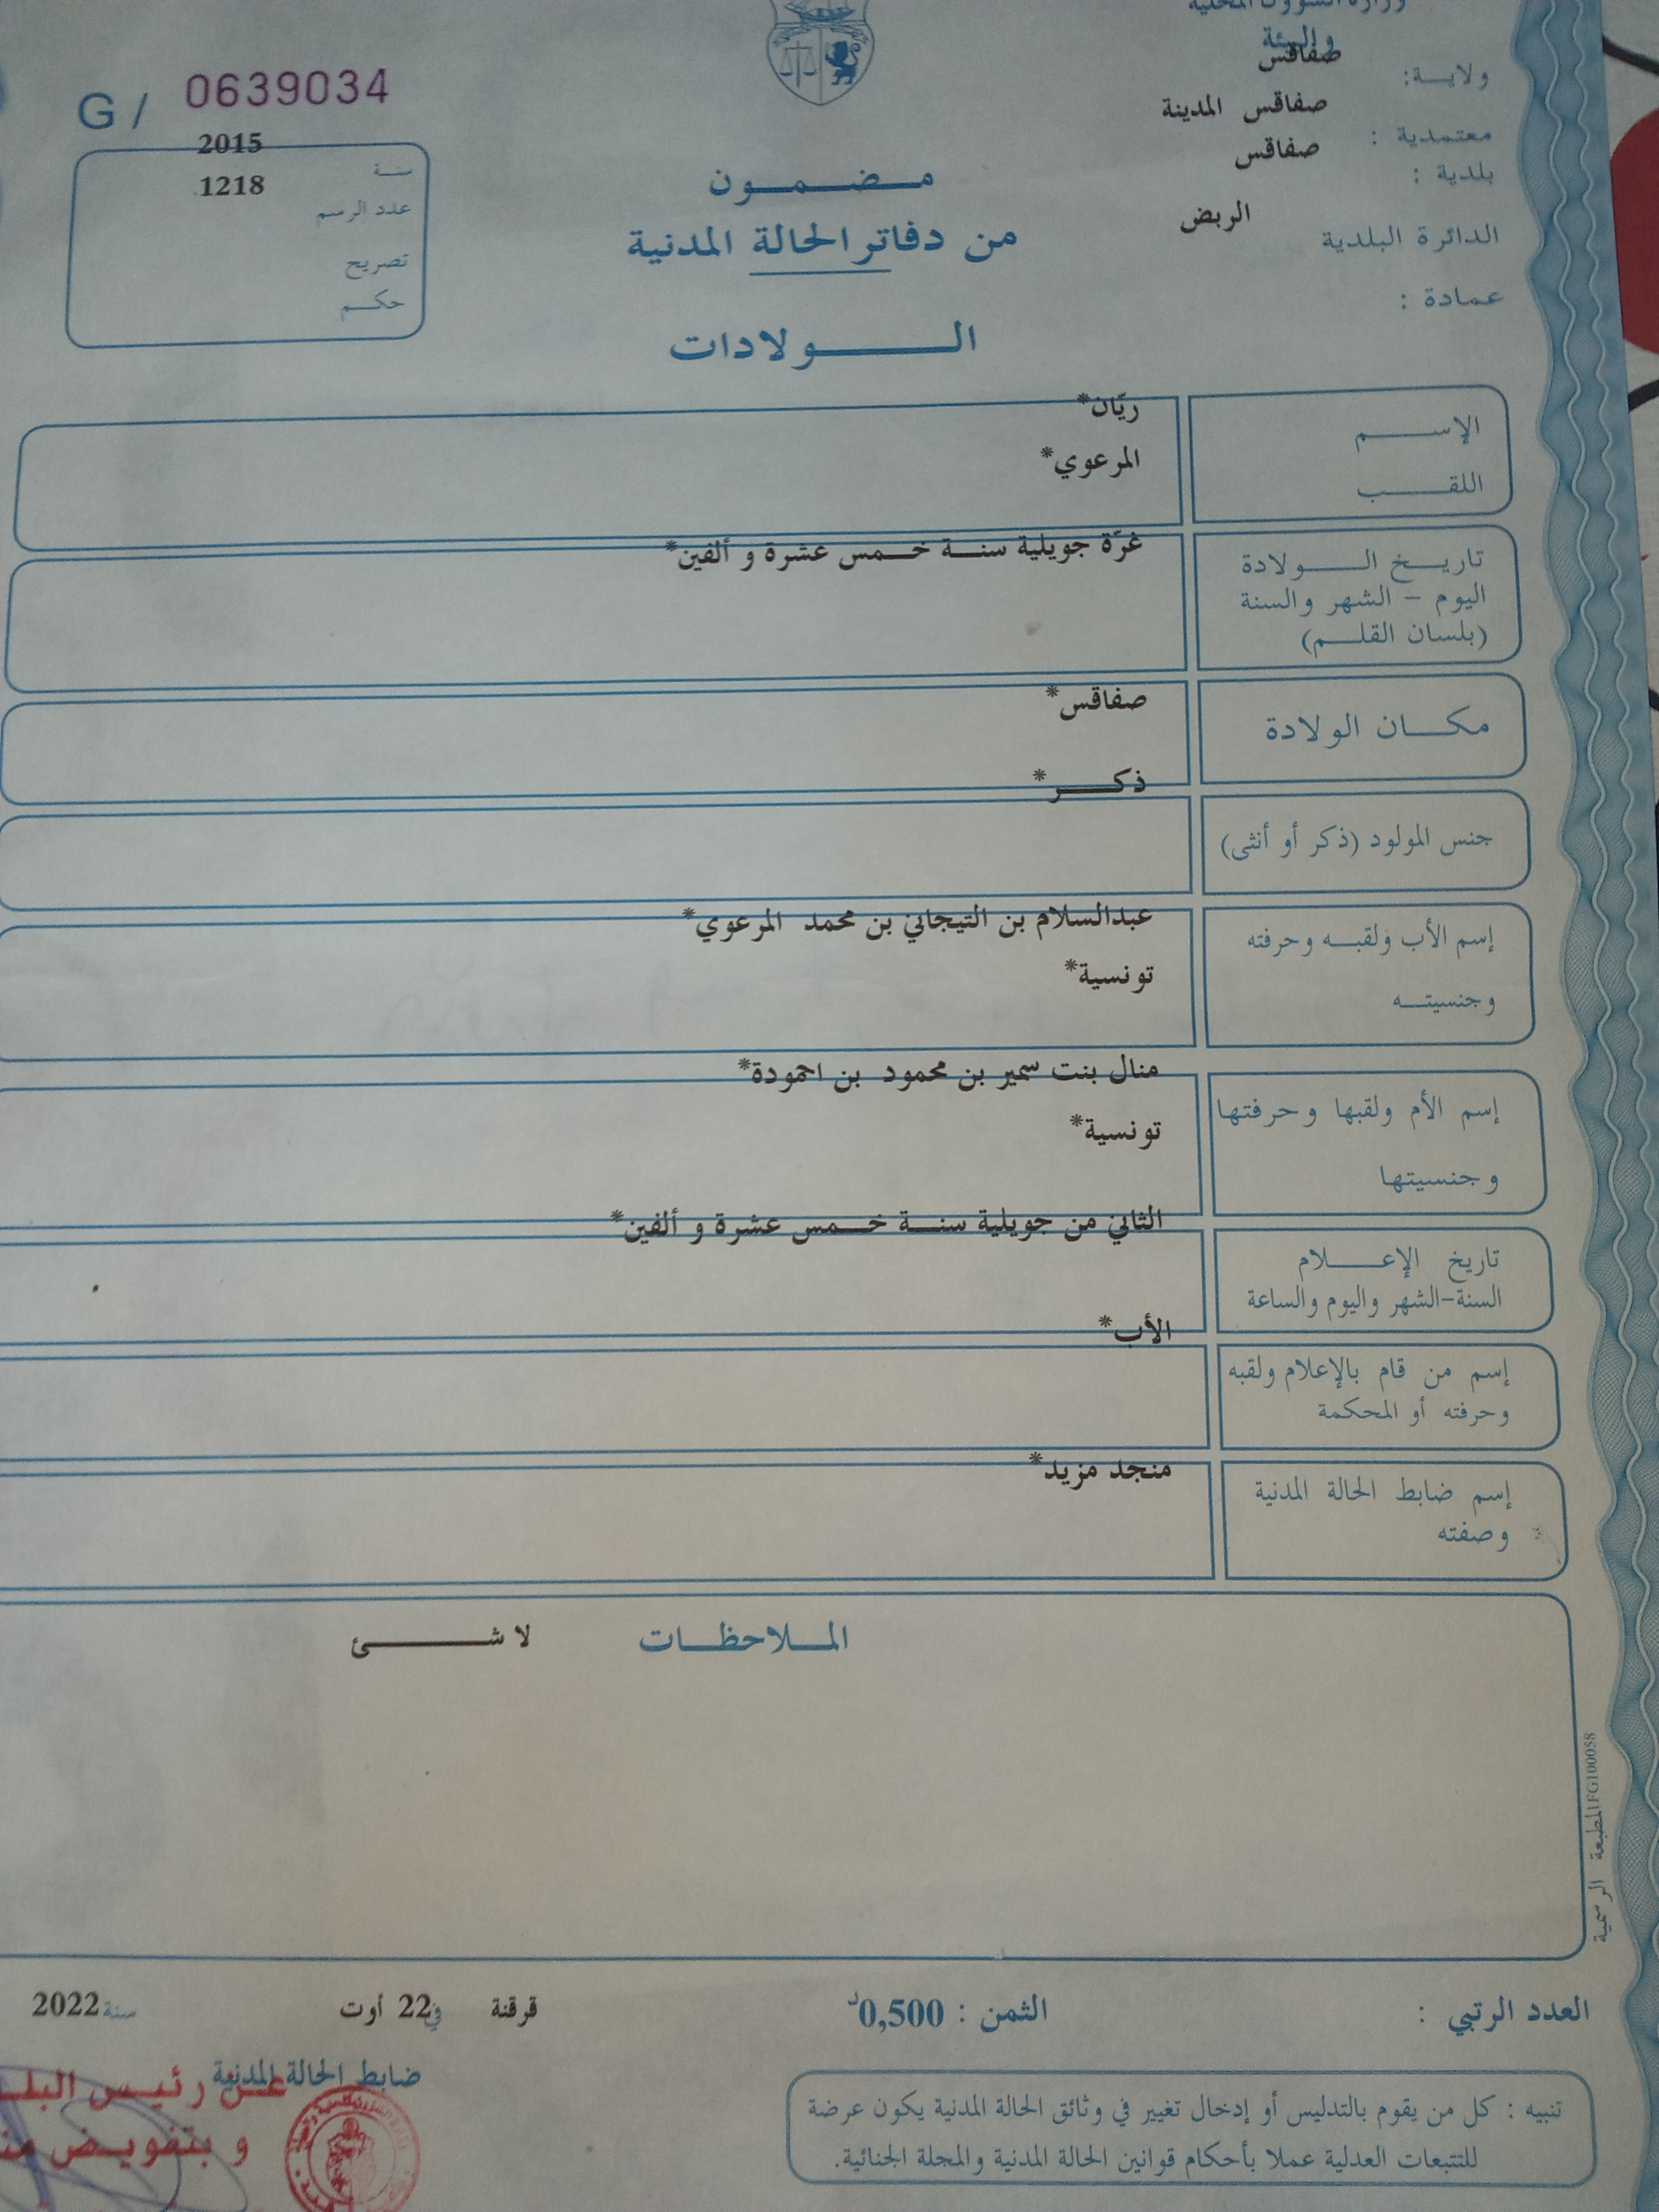 وزارة الشؤون المحلية
والبيئة
ولايـــة: صفاقس
معتمدية : صفاقس المدينة
بلدية : صفاقس
الدائرة البلدية الربض
عمادة :
G / 0639034
سنة 2015
عدد الرسم 1218
تصريح
حكم
مضمون
من دفاتر الحالة المدنية
الولادات
الإسم ريّان*
اللقب المرعوي*
تاريخ الولادة غرّة جويلية سنة خمس عشرة و ألفين*
اليوم – الشهر والسنة
(بلسان القلم)
مكان الولادة صفاقس*
ذكر*
جنس المولود (ذكر أو أنثى)
إسم الأب ولقبه وحرفته عبدالسلام بن التيجاني بن محمد المرعوي*
وجنسيته تونسية*
منال بنت سمير بن محمود بن احمودة*
إسم الأم ولقبها وحرفتها تونسية*
وجنسيتها
الثاني من جويلية سنة خمس عشرة و ألفين*
تاريخ الإعلام
السنة-الشهر واليوم والساعة
الأب*
إسم من قام بالإعلام ولقبه
وحرفته أو المحكمة
منجد مزيد*
إسم ضابط الحالة المدنية
وصفته
الملاحظات لا شئ
المطبعة الرسمية FG100058
العدد الرتبي : الثمن : 0,500د قرقنة في 22 أوت سنة 2022
ضابط الحالة المدنية
عن رئيس
وبتفويض
تنبيه : كل من يقوم بالتدليس أو إدخال تغيير في وثائق الحالة المدنية يكون عرضة
للتتبعات العدلية عملا بأحكام قوانين الحالة المدنية والمجلة الجنائية.